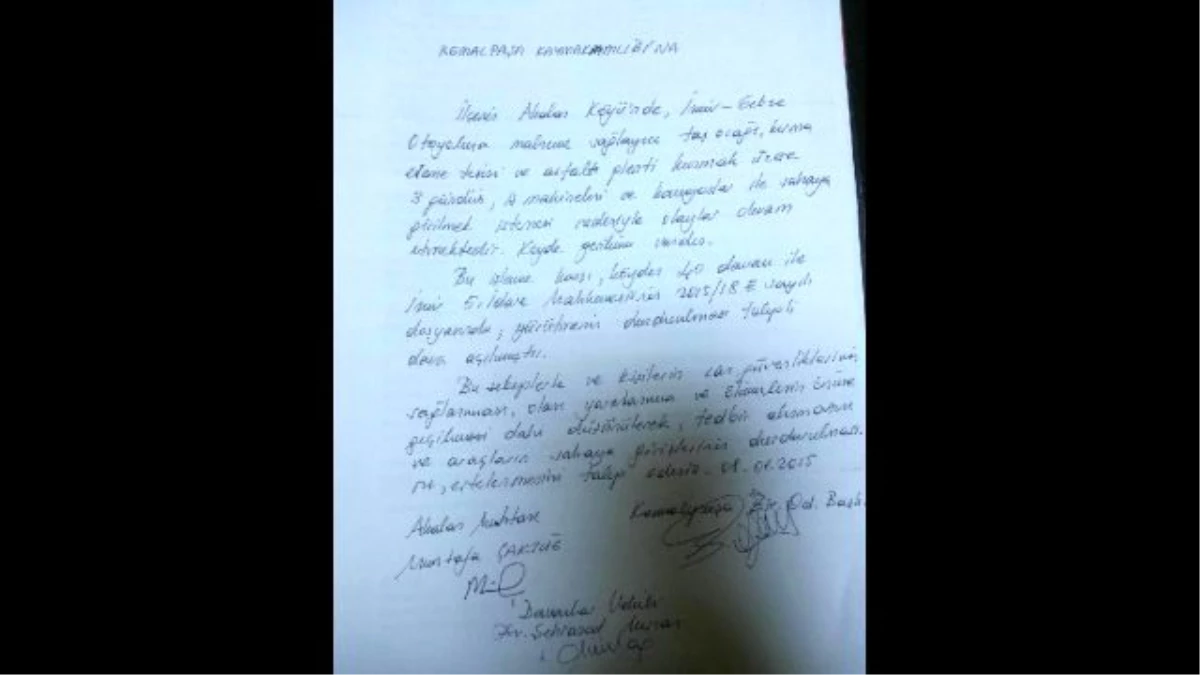 KEMALPAŞA KAYMAKAMLIĞI'NA
İlçeniz Akalan Köyü'nde, İzmir-Gebze
Otoyoluna malzeme sağlayıcı taş ocağı, kırma
eleme tesisi ve asfalt plenti kurmak üzere
3 gündür, iş makineleri ve kamyonlar ile sahaya
girilmek istenmesi nedeniyle olaylar devam
etmektedir. Köyde gerilim vardır.
Bu işleme karşı, köyden 40 davacı ile
İzmir 5. İdare Mahkemesinin 2015/18 E sayılı
dosyasında, yürütmenin durdurulması talepli
dava açılmıştır.
Bu sebeplerle ve kişilerin can güvenliklerinin
sağlanması, olası yaralanma ve ölümlerin önüne
geçilmesi dahi düşünülerek, tedbir alınmasını
ve araçların sahaya girişlerinin durdurulması
nı, ertelenmesini talep ederiz. 08.01.2015
Akalan Muhtarı
Kemalpaşa Zir. Od. Başk.
Mustafa ÇAKTUĞ
Davacılar Vekili
Av. Şehrazat